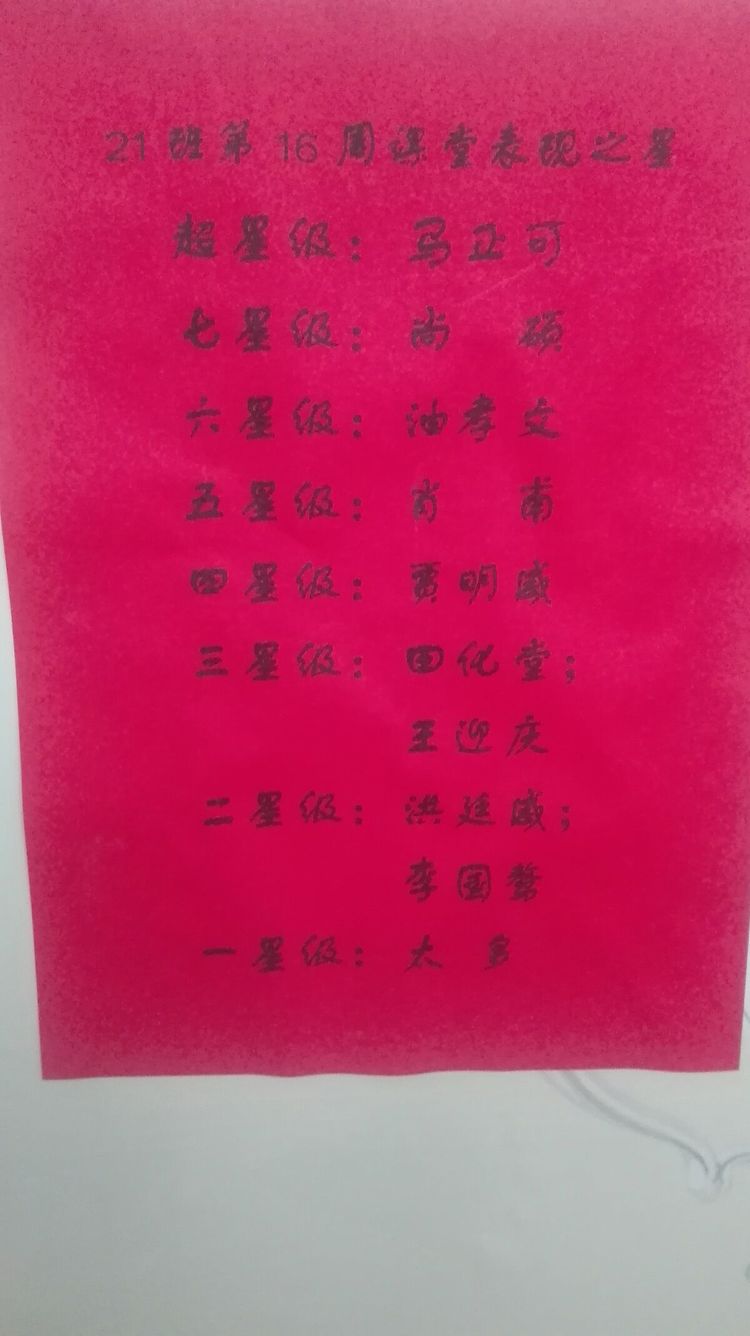 21 班第 16 周课堂表现之星
超星级：马正可
七星级：尚 硕
六星级：油孝文
五星级：肖 甫
四星级：贾明威
三星级：田化堂；
王迎庆
二星级：洪延威；
李国哲
一星级：太 多